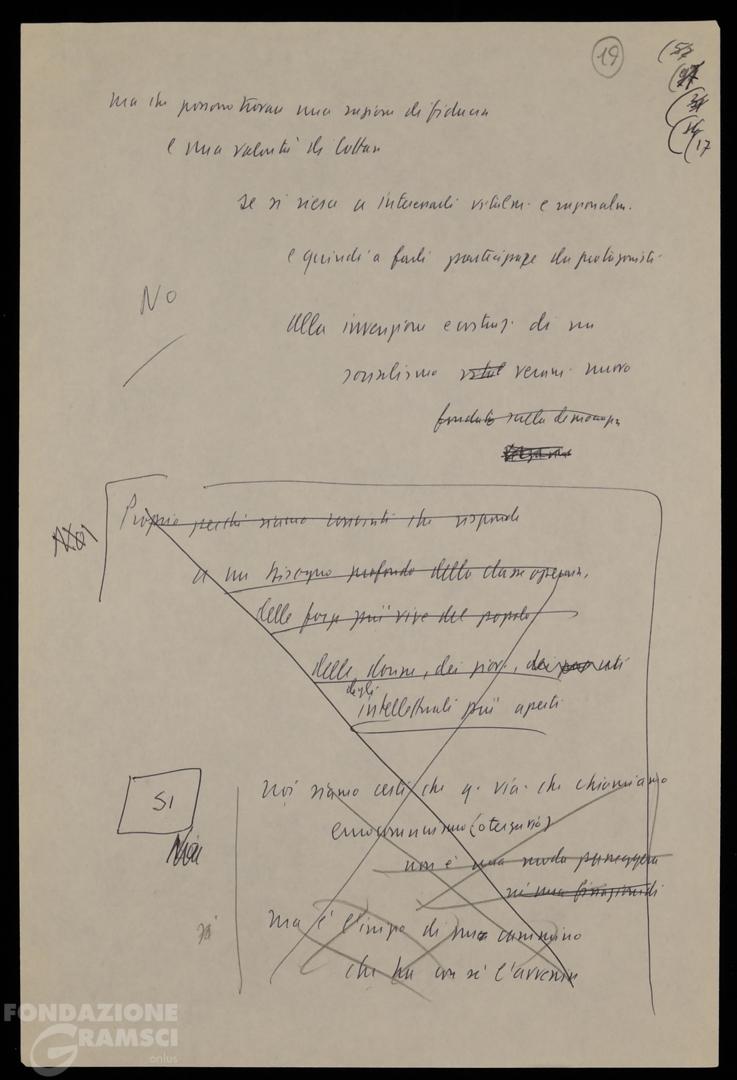 19
17
ma che possono trovare una ragione di fiducia
e una volontà di lotta
se si riesce a interessarli vitalm. e razionalm.
e quindi a farli partecipare da protagonisti
No
alla invenzione e costruz. di un
socialismo veram. nuovo
fondato sulla democrazia
Proprio perché siamo convinti che risponde
a un bisogno profondo della classe operaia,
delle forze più vive del popolo
delle donne, dei giov.,
degli
intellettuali più aperti
SI
Noi siamo certi che q. via che chiamiamo
eurocomunismo (o terza via)
non è una moda passeggera
né una
ma è l'inizio di un cammino
che ha con sé l'avvenire
FONDAZIONE
GRAMSCI
onlus